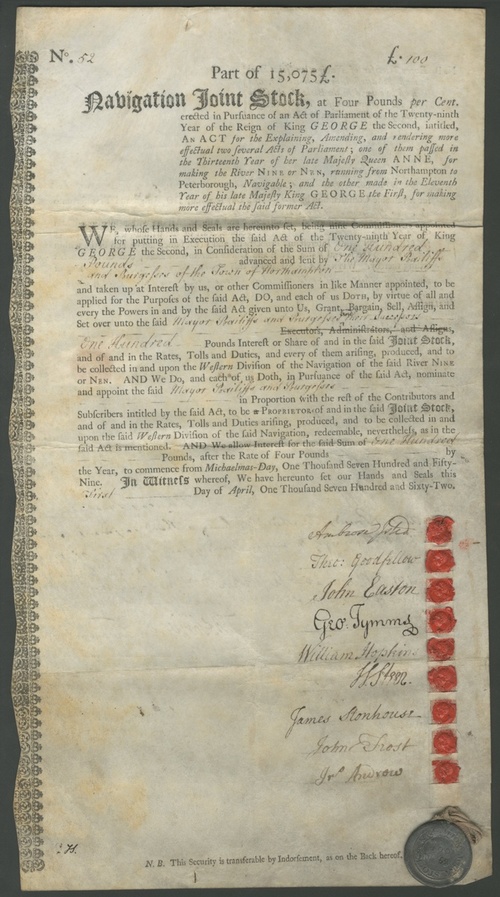 No. 52
£. 100
Part of 15,075£.
Navigation Joint Stock, at Four Pounds per Cent.
erected in Pursuance of an Act of Parliament of the Twenty-ninth
Year of the Reign of King GEORGE the Second, intitled,
An ACT for the Explaining, Amending, and rendering more
effectual two several Acts of Parliament; one of them passed in
the Thirteenth Year of her late Majesty Queen ANNE, for
making the River NINE or NEN, running from Northampton to
Peterborough, Navigable; and the other made in the Eleventh
Year of his late Majesty King GEORGE the First, for making
more effectual the said former Act.
WE, whose Hands and Seals are hereunto set, being nine Commissioners appointed
for putting in Execution the said Act of the Twenty-ninth Year of King
GEORGE the Second, in Consideration of the Sum of One Hundred
Pounds advanced and lent by The Mayor Bailiffs
and Burgesses of the Town of Northampton
and taken up at Interest by us, or other Commissioners in like Manner appointed, to be
applied for the Purposes of the said Act, DO, and each of us DOTH, by virtue of all and
every the Powers in and by the said Act given unto Us, Grant, Bargain, Sell, Assign, and
Set over unto the said Mayor Bailiffs and Burgesses their Successors
Executors, Administrators, and Assigns,
One Hundred Pounds Interest or Share of and in the said Joint Stock,
and of and in the Rates, Tolls and Duties, and every of them arising, produced, and to
be collected in and upon the Western Division of the Navigation of the said River NINE
or NEN. AND We Do, and each of us Doth, in Pursuance of the said Act, nominate
and appoint the said Mayor Bailiffs and Burgesses
in Proportion with the rest of the Contributors and
Subscribers intitled by the said Act, to be a PROPRIETOR of and in the said Joint Stock,
and of and in the Rates, Tolls and Duties arising, produced, and to be collected in and
upon the said Western Division of the said Navigation, redeemable, nevertheless, as in the
said Act is mentioned. AND We allow Interest for the said Sum of One Hundred
Pounds, after the Rate of Four Pounds by
the Year, to commence from Michaelmas-Day, One Thousand Seven Hundred and Fifty-
Nine. In Witness whereof, We have hereunto set our Hands and Seals this
First Day of April, One Thousand Seven Hundred and Sixty-Two.
Theo: Goodfellow
John Easton
Geo. Tymms
William Hopkins
James Stonhouse
John Frost
Jno Andrew
N. B. This Security is transferable by Indorsement, as on the Back hereof.